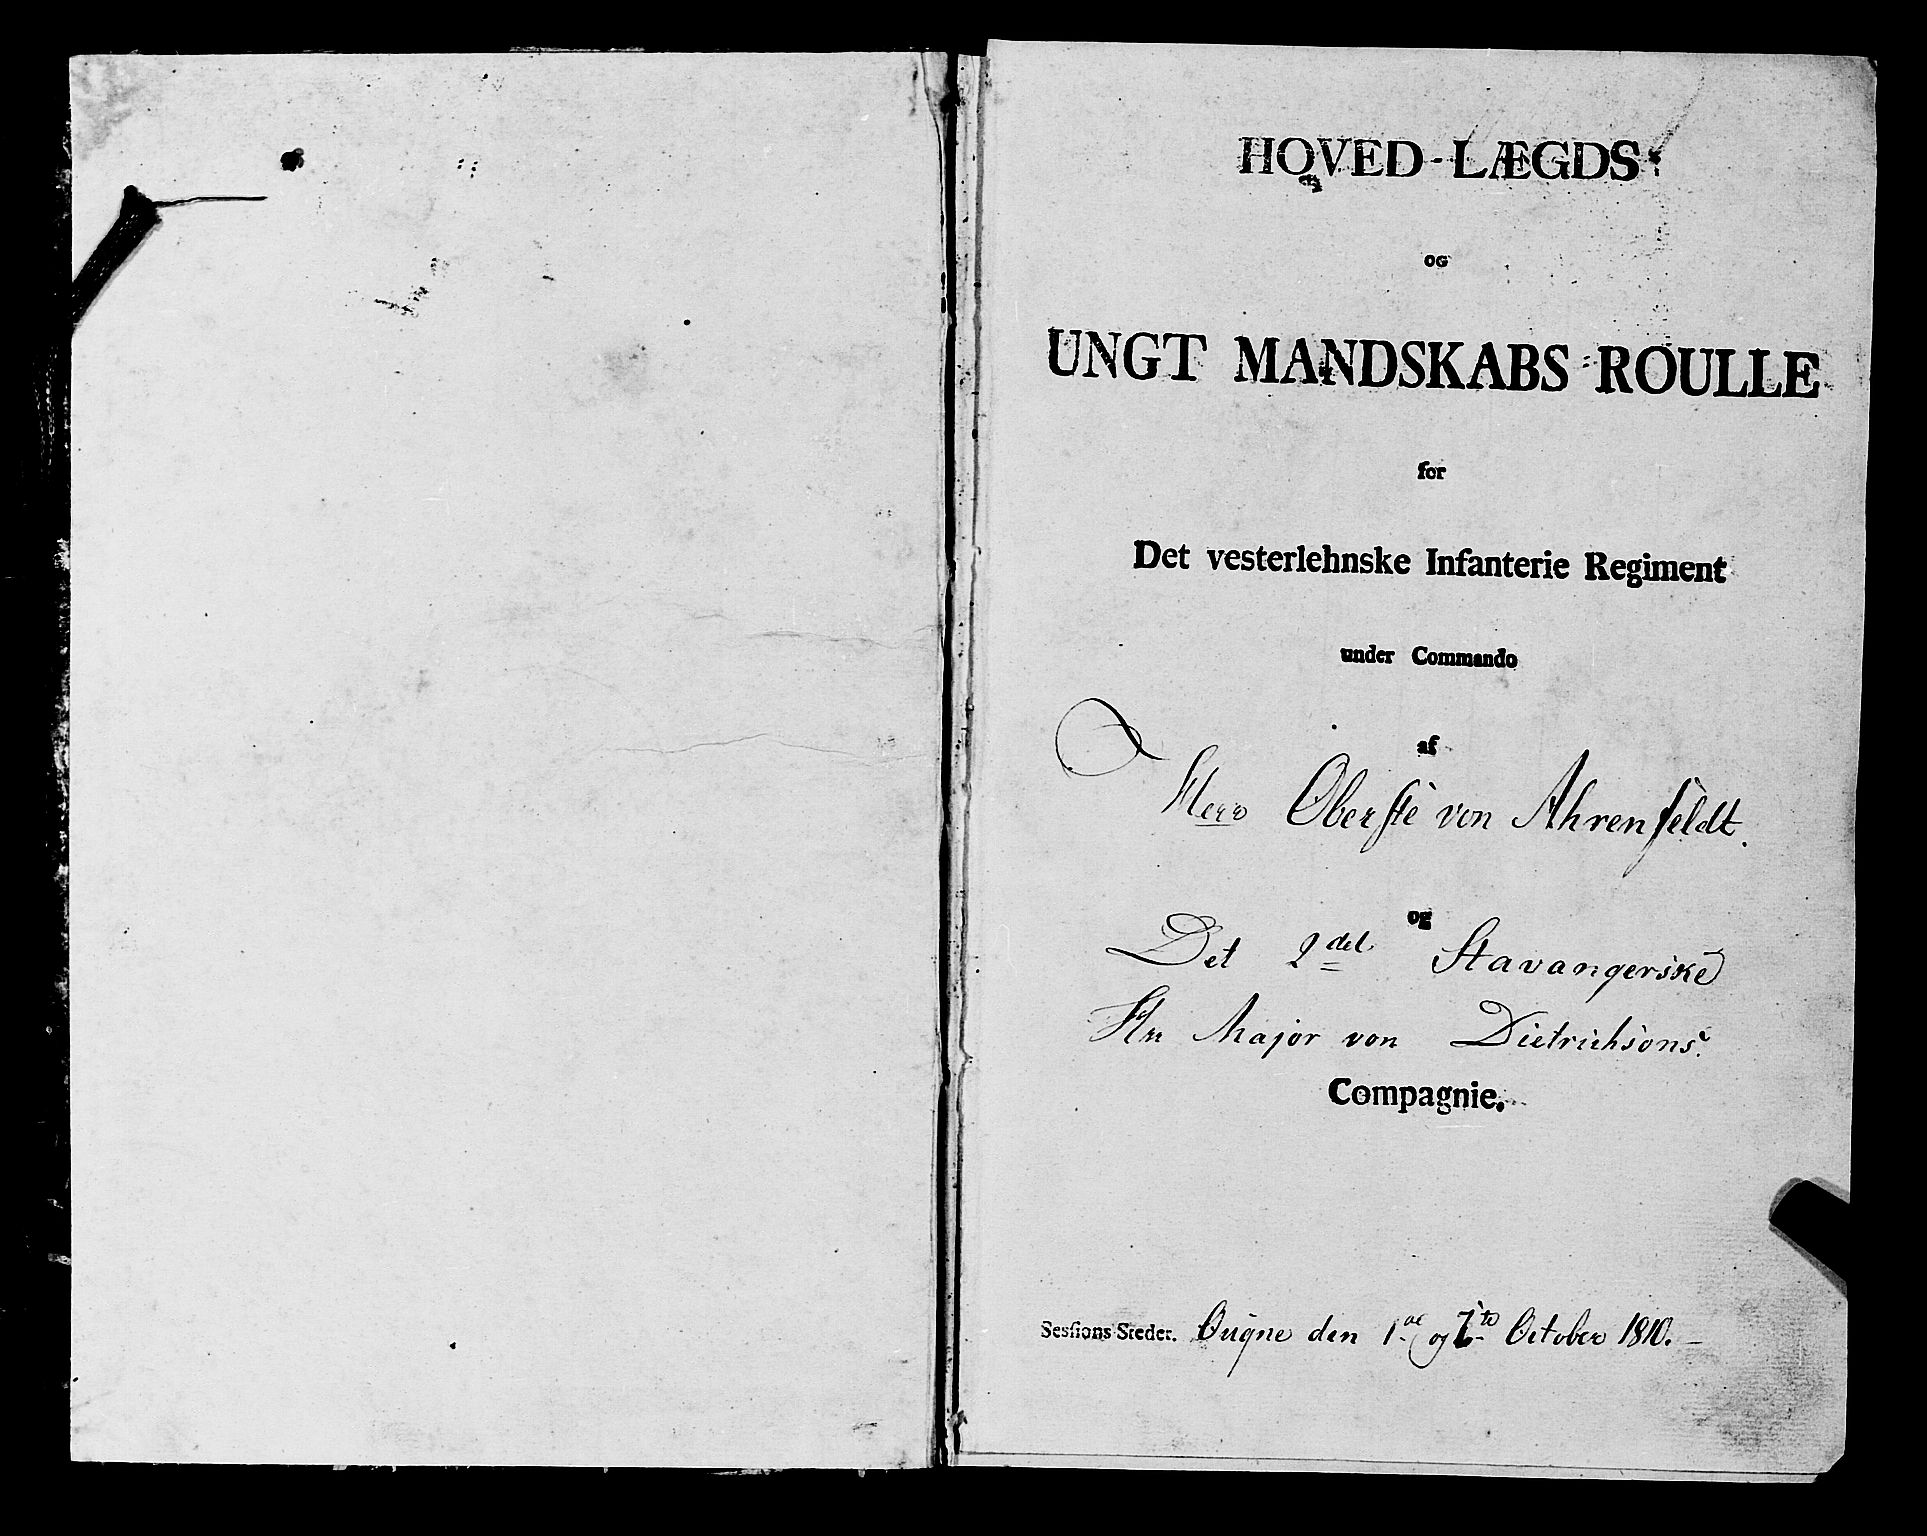 HOVED-LÆGDS
OG
UNGT MANDSKABS ROULLE
for
Det vesterlehnske Infanterie Regiment
under Commando
af
Herr Oberste von Ahrenfeldt.
og
Det 2det Stavangerske
Hrr Major von Dietrichsons.
Compagnie.
Sessions Steder. Ougne den 1ste og October 1810.